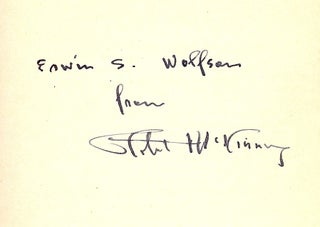 Erwin S. Wolfson
from
Robert McKinney